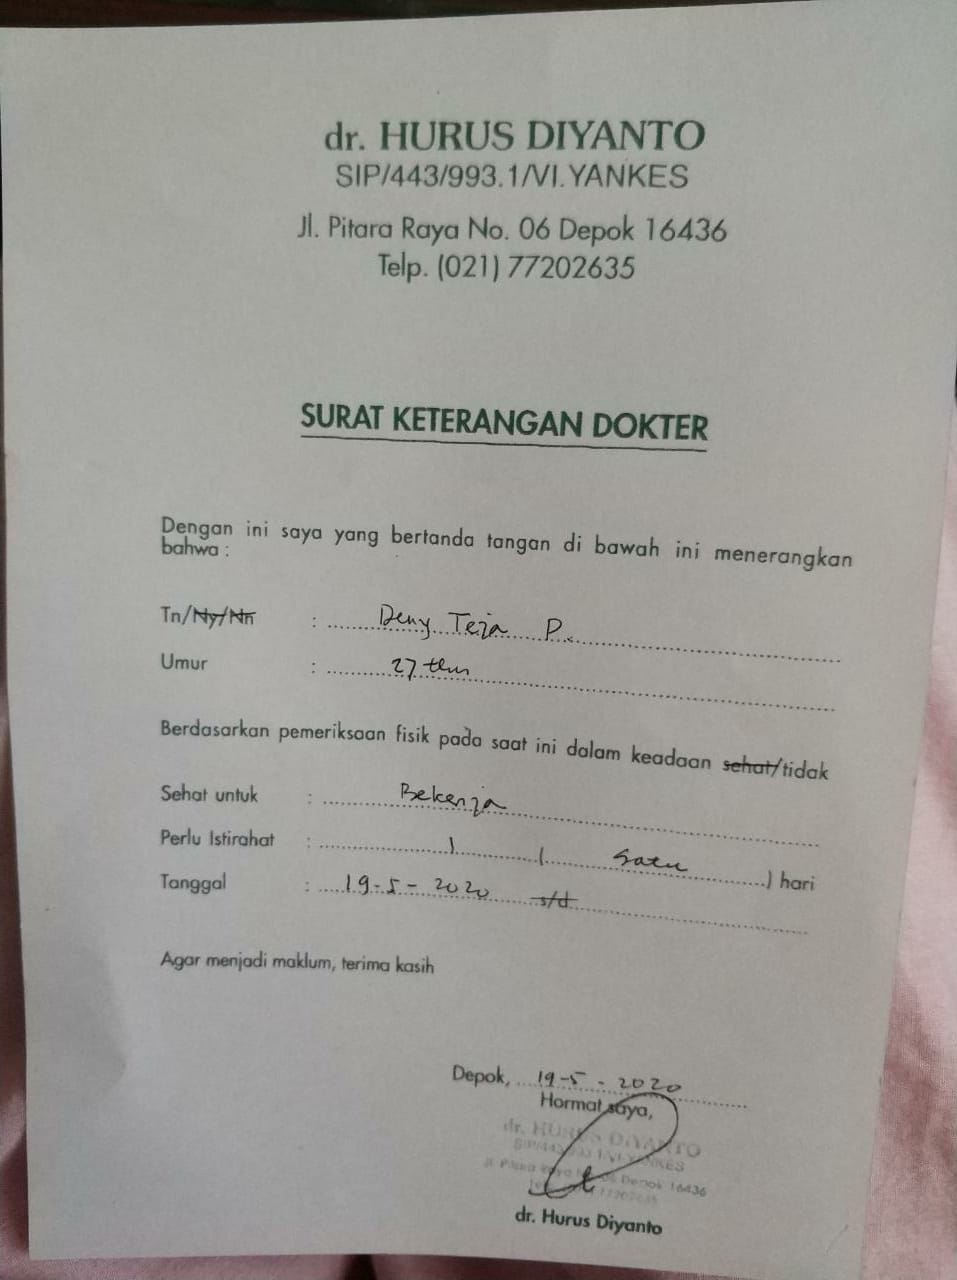 dr. HURUS DIYANTO
SIP/443/993.1/VI.YANKES
Jl. Pitara Raya No. 06 Depok 16436
Telp. (021) 77202635
SURAT KETERANGAN DOKTER
Dengan ini saya yang bertanda tangan di bawah ini menerangkan
bahwa :
Tn/Ny/Nn : Deny Teja P.
Umur : 27 thn
Berdasarkan pemeriksaan fisik pada saat ini dalam keadaan sehat/tidak
Sehat untuk : Bekerja
Perlu Istirahat : 1 ( Satu ) hari
Tanggal : 19-5-2020 s/d
Agar menjadi maklum, terima kasih
Depok, 19-5-2020
Hormat saya,
dr. HURUS DIYANTO
SIP/443/993.1/VI.YANKES
Jl. Pitara Raya No. 06 Depok 16436
77202635
dr. Hurus Diyanto